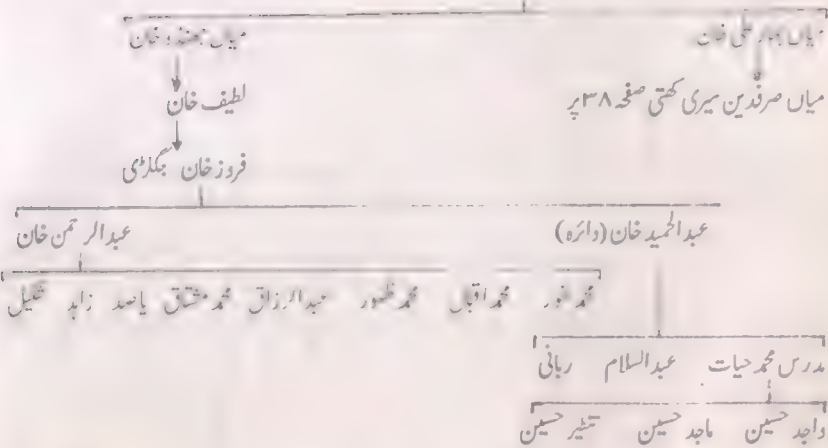 میاں بہادر علی خان میاں جھنڈو خان
میاں صرفدین سیری کھتی صفحہ ۳۸ پر لطیف خان
فروز خان جگلڑی
عبدالحمید خان (دائرہ) عبدالرحمن خان
محمد غفور محمد اقبال محمد ظہور عبدالرزاق محمد مشتاق یاصد زاہد شکیل
مدرس محمد حیات عبدالسلام ربانی
واجد حسین ماجد حسین تنثیر حسین